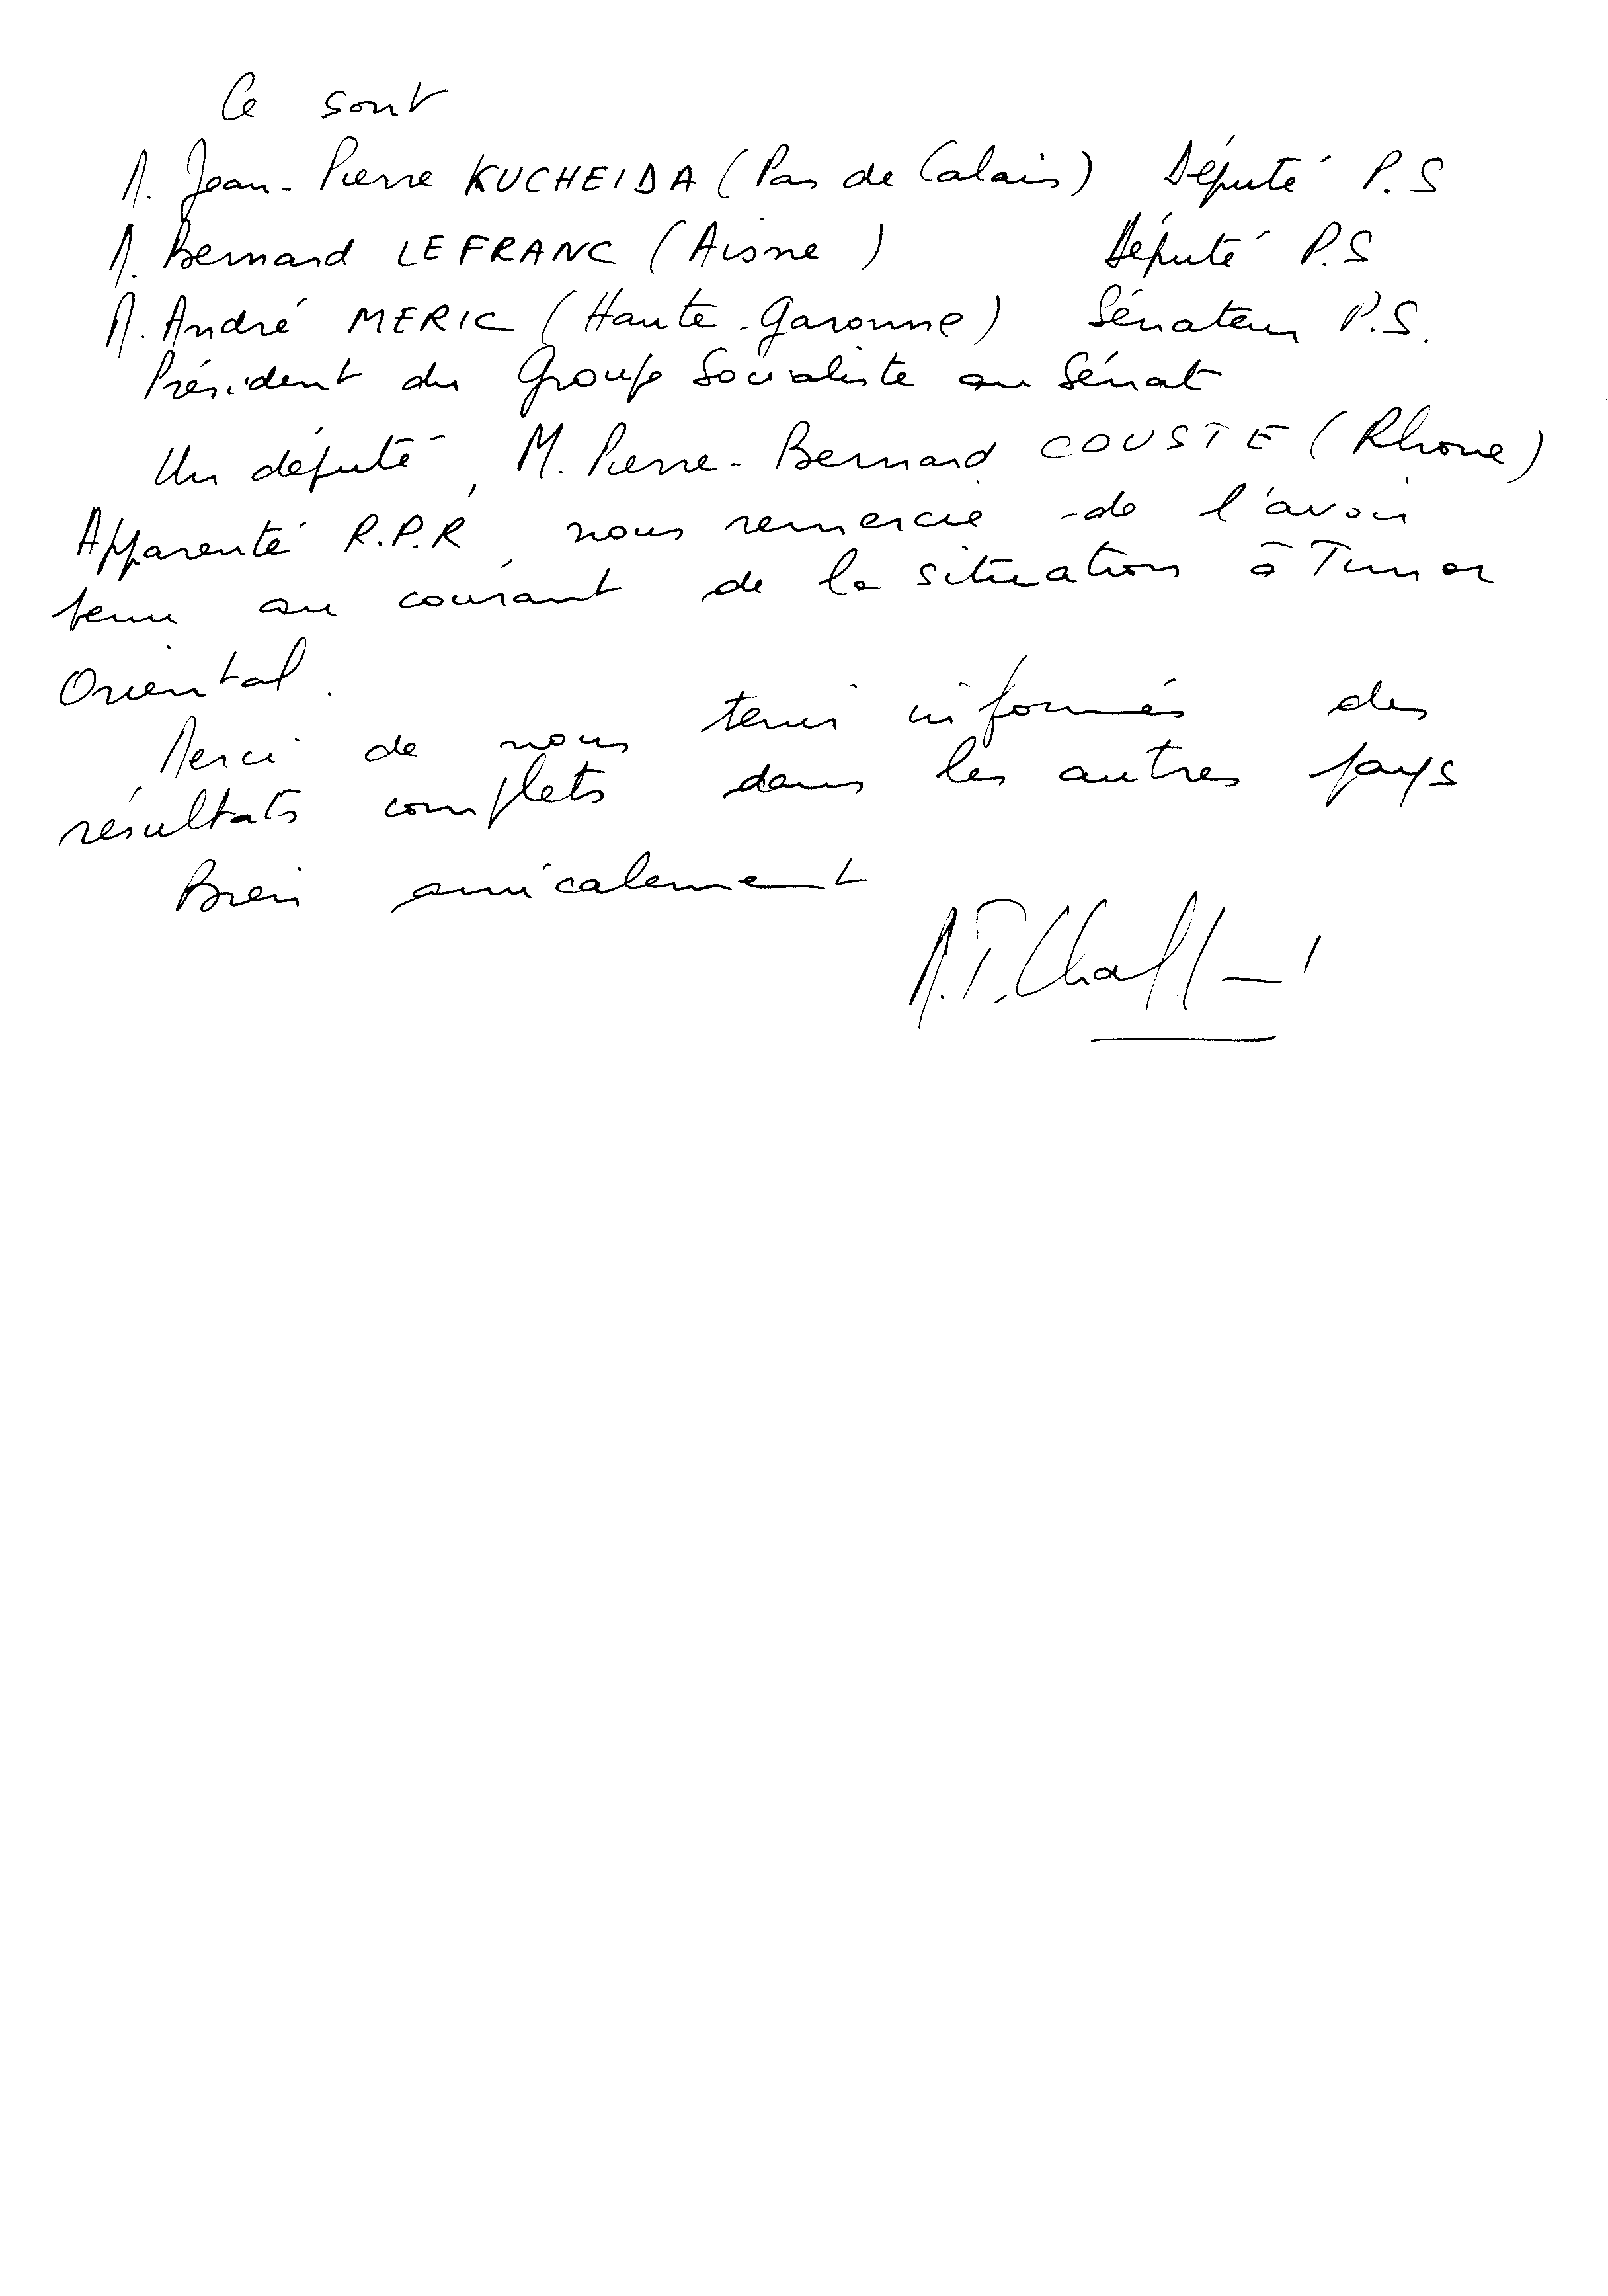 Ce sont
M. Jean-Pierre KUCHEIDA (Pas de Calais) Député P.S
M. Bernard LEFRANC (Aisne) Député P.S
M. André MERIC (Haute-Garonne) Sénateur P.S.
Président du Groupe Socialiste au Sénat
Un député, M. Pierre-Bernard COUSTE (Rhone)
Apparenté R.P.R, nous remercie de l'avoir
tenu au courant de la situation à Timor
Oriental.
Merci de nous tenir informés des
résultats complets dans les autres pays
Bien amicalement